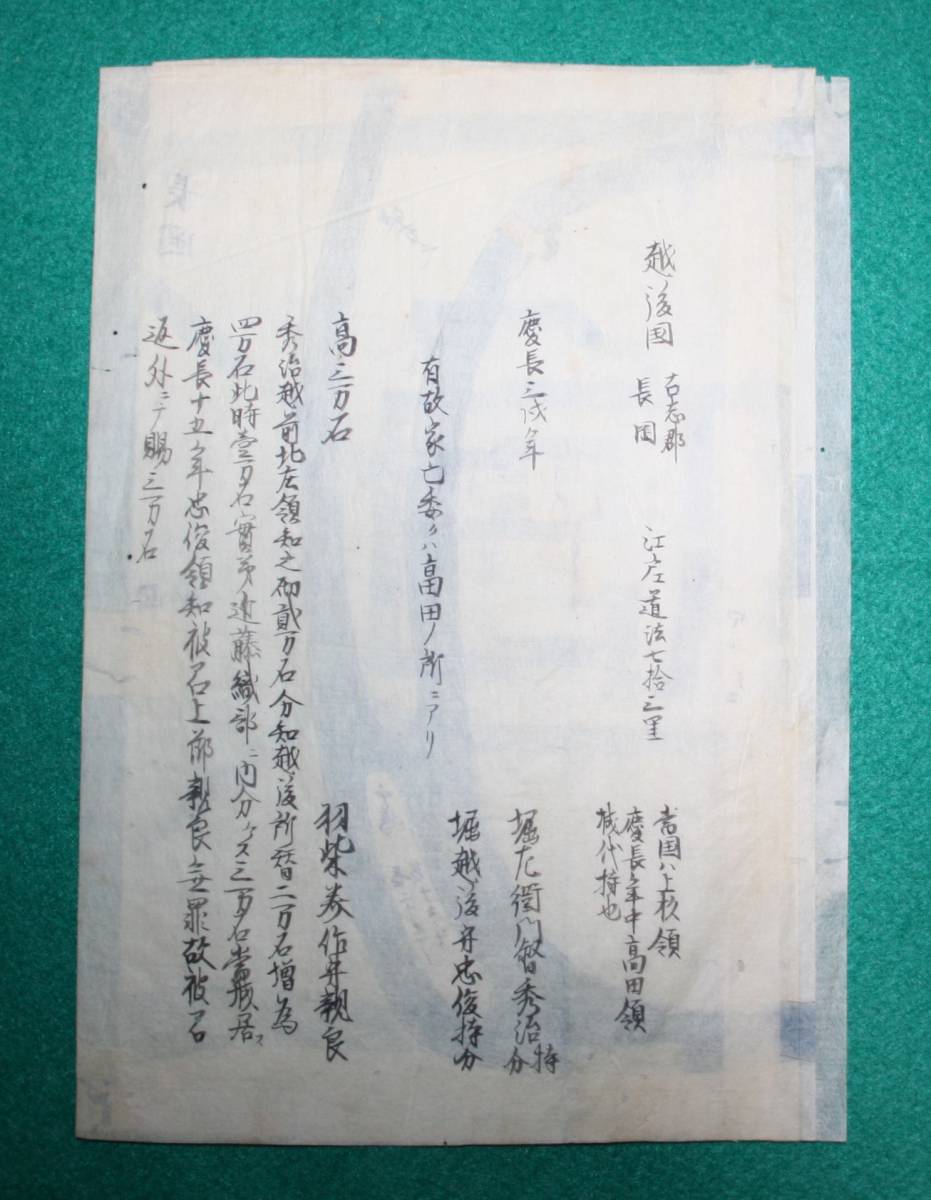 越後国 古志郡
長岡
江戸道法七拾三里
当国ハ上杉領
慶長年中高田領
城代持也
慶長三戌年
堀左衛門督秀治持分
有故家亡委クハ高田ノ所ニアリ
堀越後守忠俊持分
高三万石
羽柴美作守親良
秀治越前北庄領知之砌貳万石分知越後所替二万石増為
四万石此時壹万石實弟近藤織部ニ内分ケス三万石當城居ス
慶長十五年忠俊領知被召上節親良無罪故被召
返外ニテ賜三万石
長岡